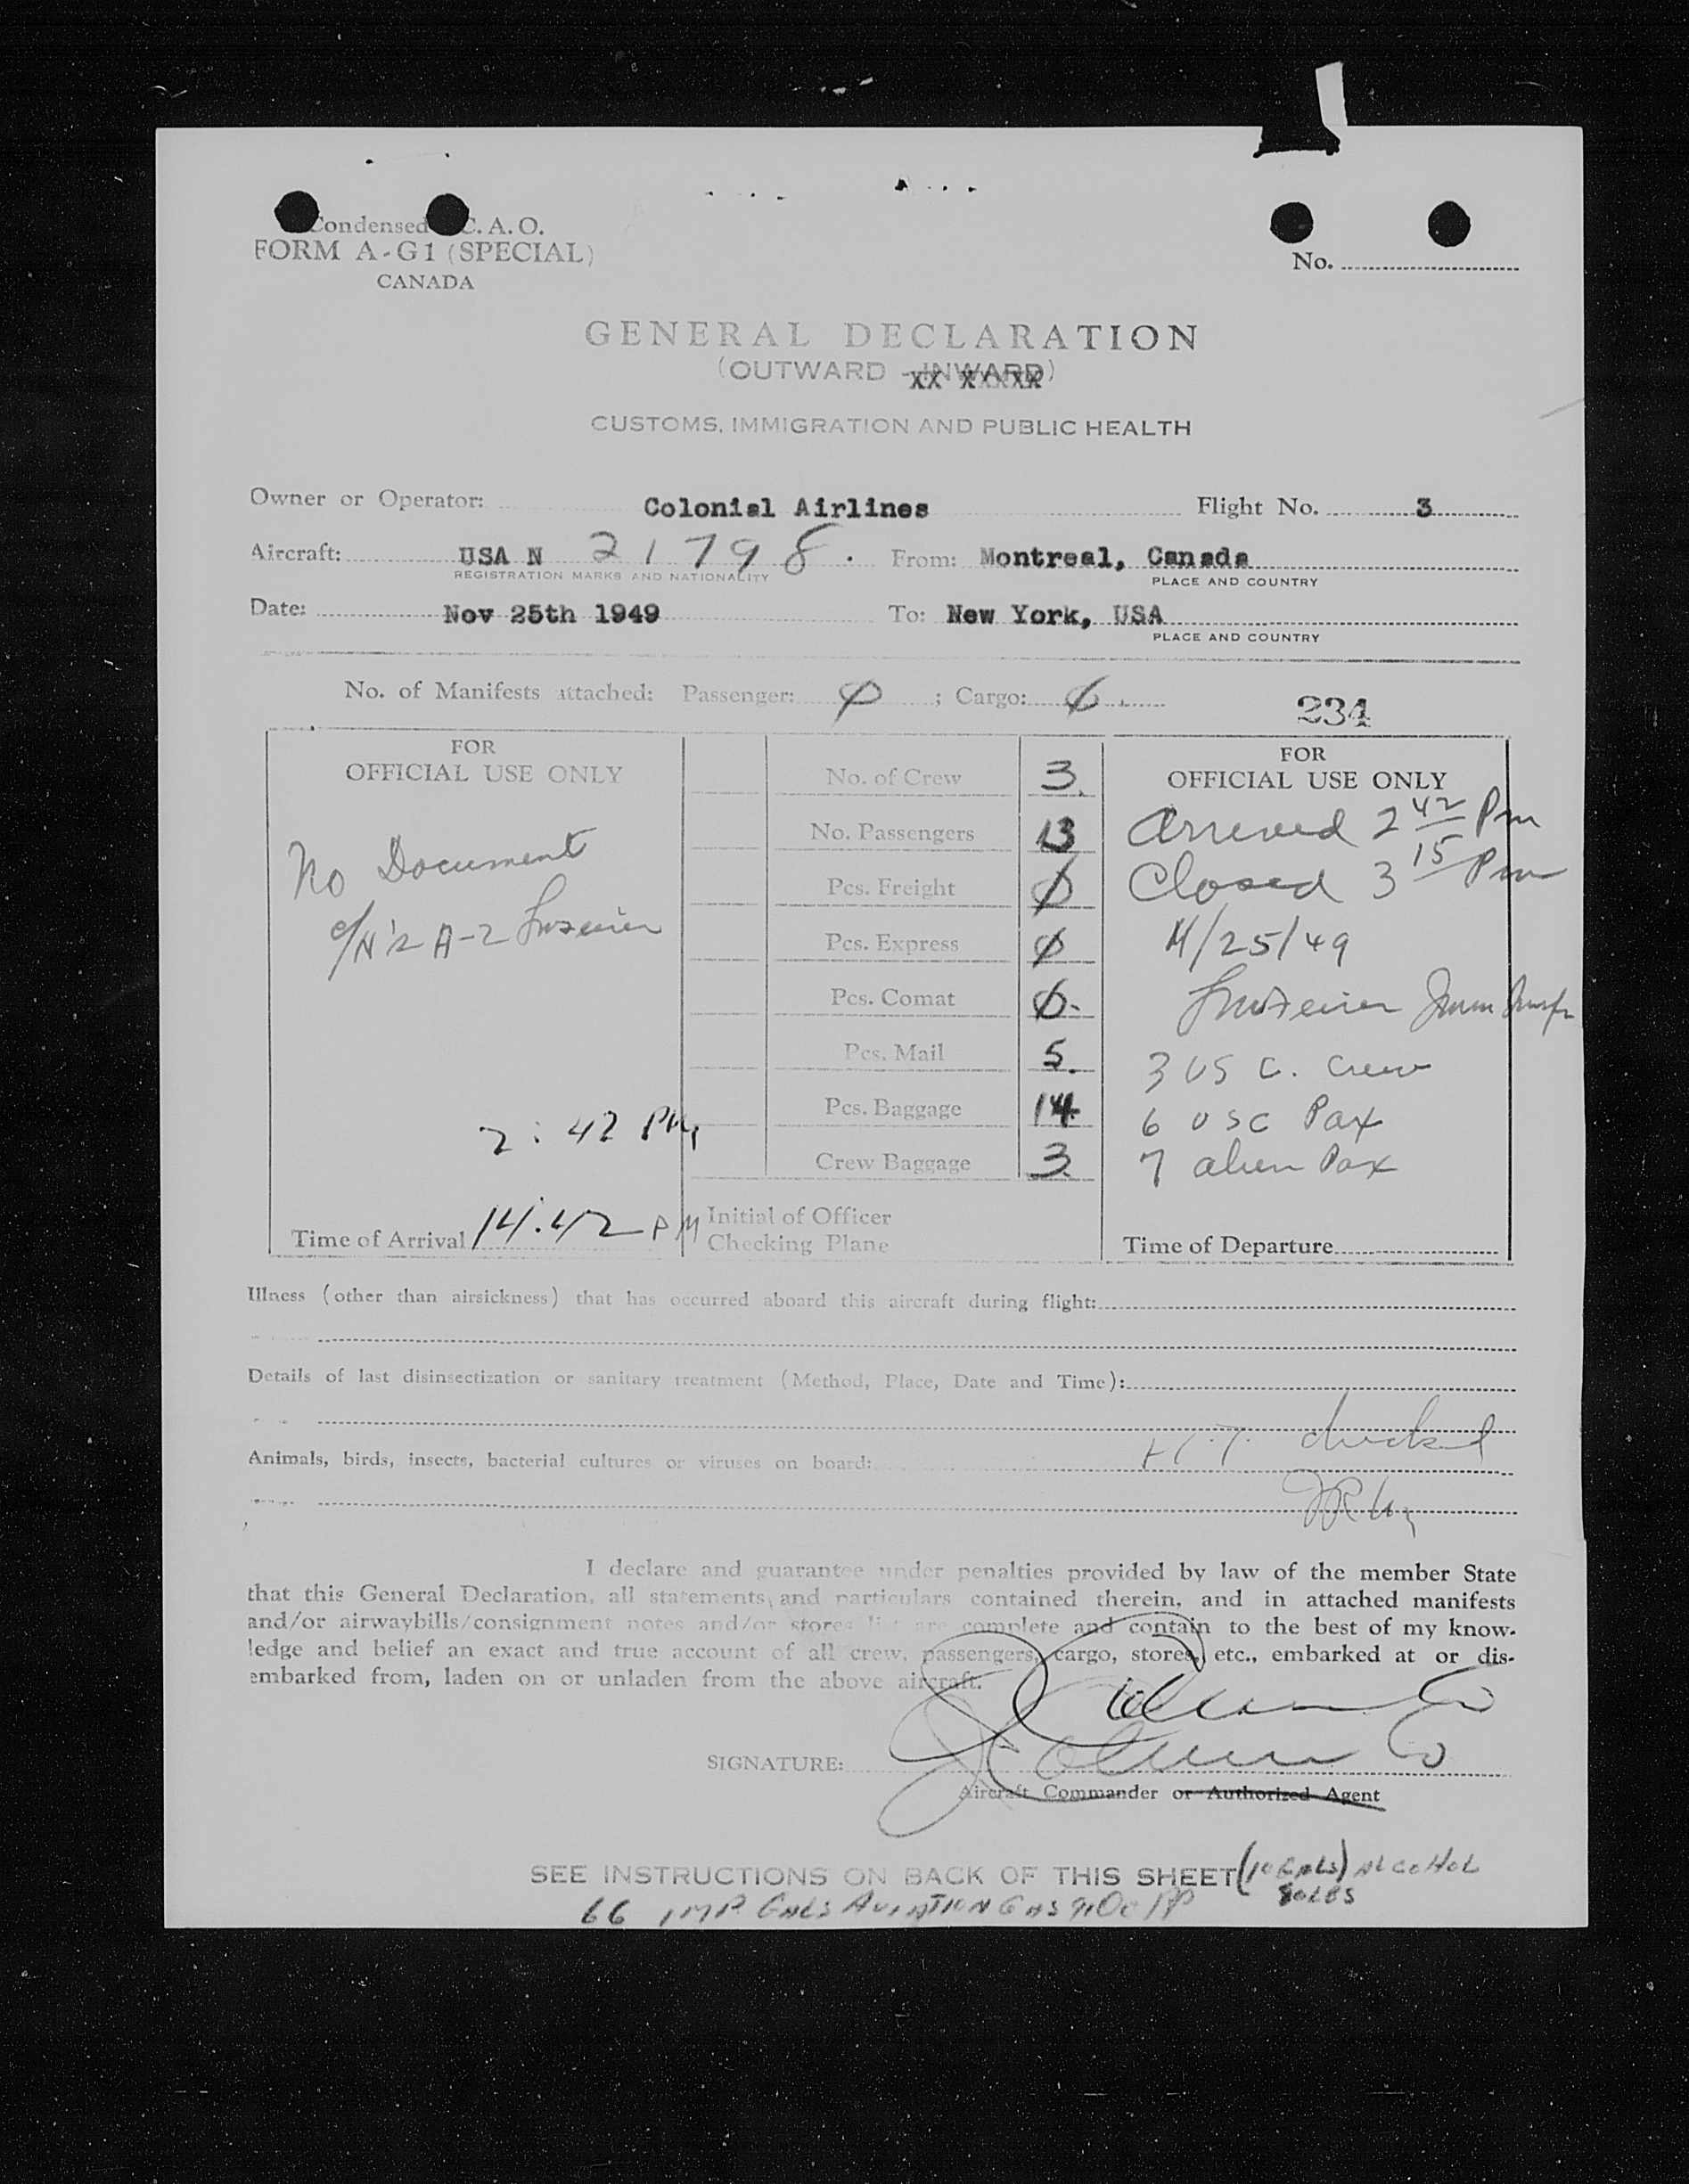 Condensed C. A. O.
FORM A-G1 (SPECIAL)
CANADA
No.
GENERAL DECLARATION
(OUTWARD - INWARD)
XX XXXXX
CUSTOMS, IMMIGRATION AND PUBLIC HEALTH
Owner or Operator: Colonial Airlines Flight No. 3
Aircraft: USA N 21798. From: Montreal, Canada
REGISTRATION MARKS AND NATIONALITY PLACE AND COUNTRY
Date: Nov 25th 1949 To: New York, USA
PLACE AND COUNTRY
No. of Manifests attached: Passenger: ; Cargo:
234
FOR
OFFICIAL USE ONLY
No Document
A-2
2:42 PM
Time of Arrival 14.42 PM
No. of Crew 3.
No. Passengers 13
Pcs. Freight Ø
Pcs. Express Ø
Pcs. Comat Ø.
Pcs. Mail 5.
Pcs. Baggage 14
Crew Baggage 3
Initial of Officer
Checking Plane
FOR
OFFICIAL USE ONLY
Arrived 2 42 Pm
Closed 3 15 Pm
11/25/49
3 US C. Crew
6 USC Pax
7 alien Pax
Time of Departure
Illness (other than airsickness) that has occurred aboard this aircraft during flight:
Details of last disinsectization or sanitary treatment (Method, Place, Date and Time):
checked
Animals, birds, insects, bacterial cultures or viruses on board:
I declare and guarantee under penalties provided by law of the member State
that this General Declaration, all statements and particulars contained therein, and in attached manifests
and/or airwaybills/consignment notes and/or stores list are complete and contain to the best of my know-
ledge and belief an exact and true account of all crew, passengers, cargo, stores, etc., embarked at or dis-
embarked from, laden on or unladen from the above aircraft.
SIGNATURE:
Aircraft Commander or Authorized Agent
SEE INSTRUCTIONS ON BACK OF THIS SHEET (10 GALS) ALCOHOL
66 IMP. GALS AVIATION GAS 80LBS